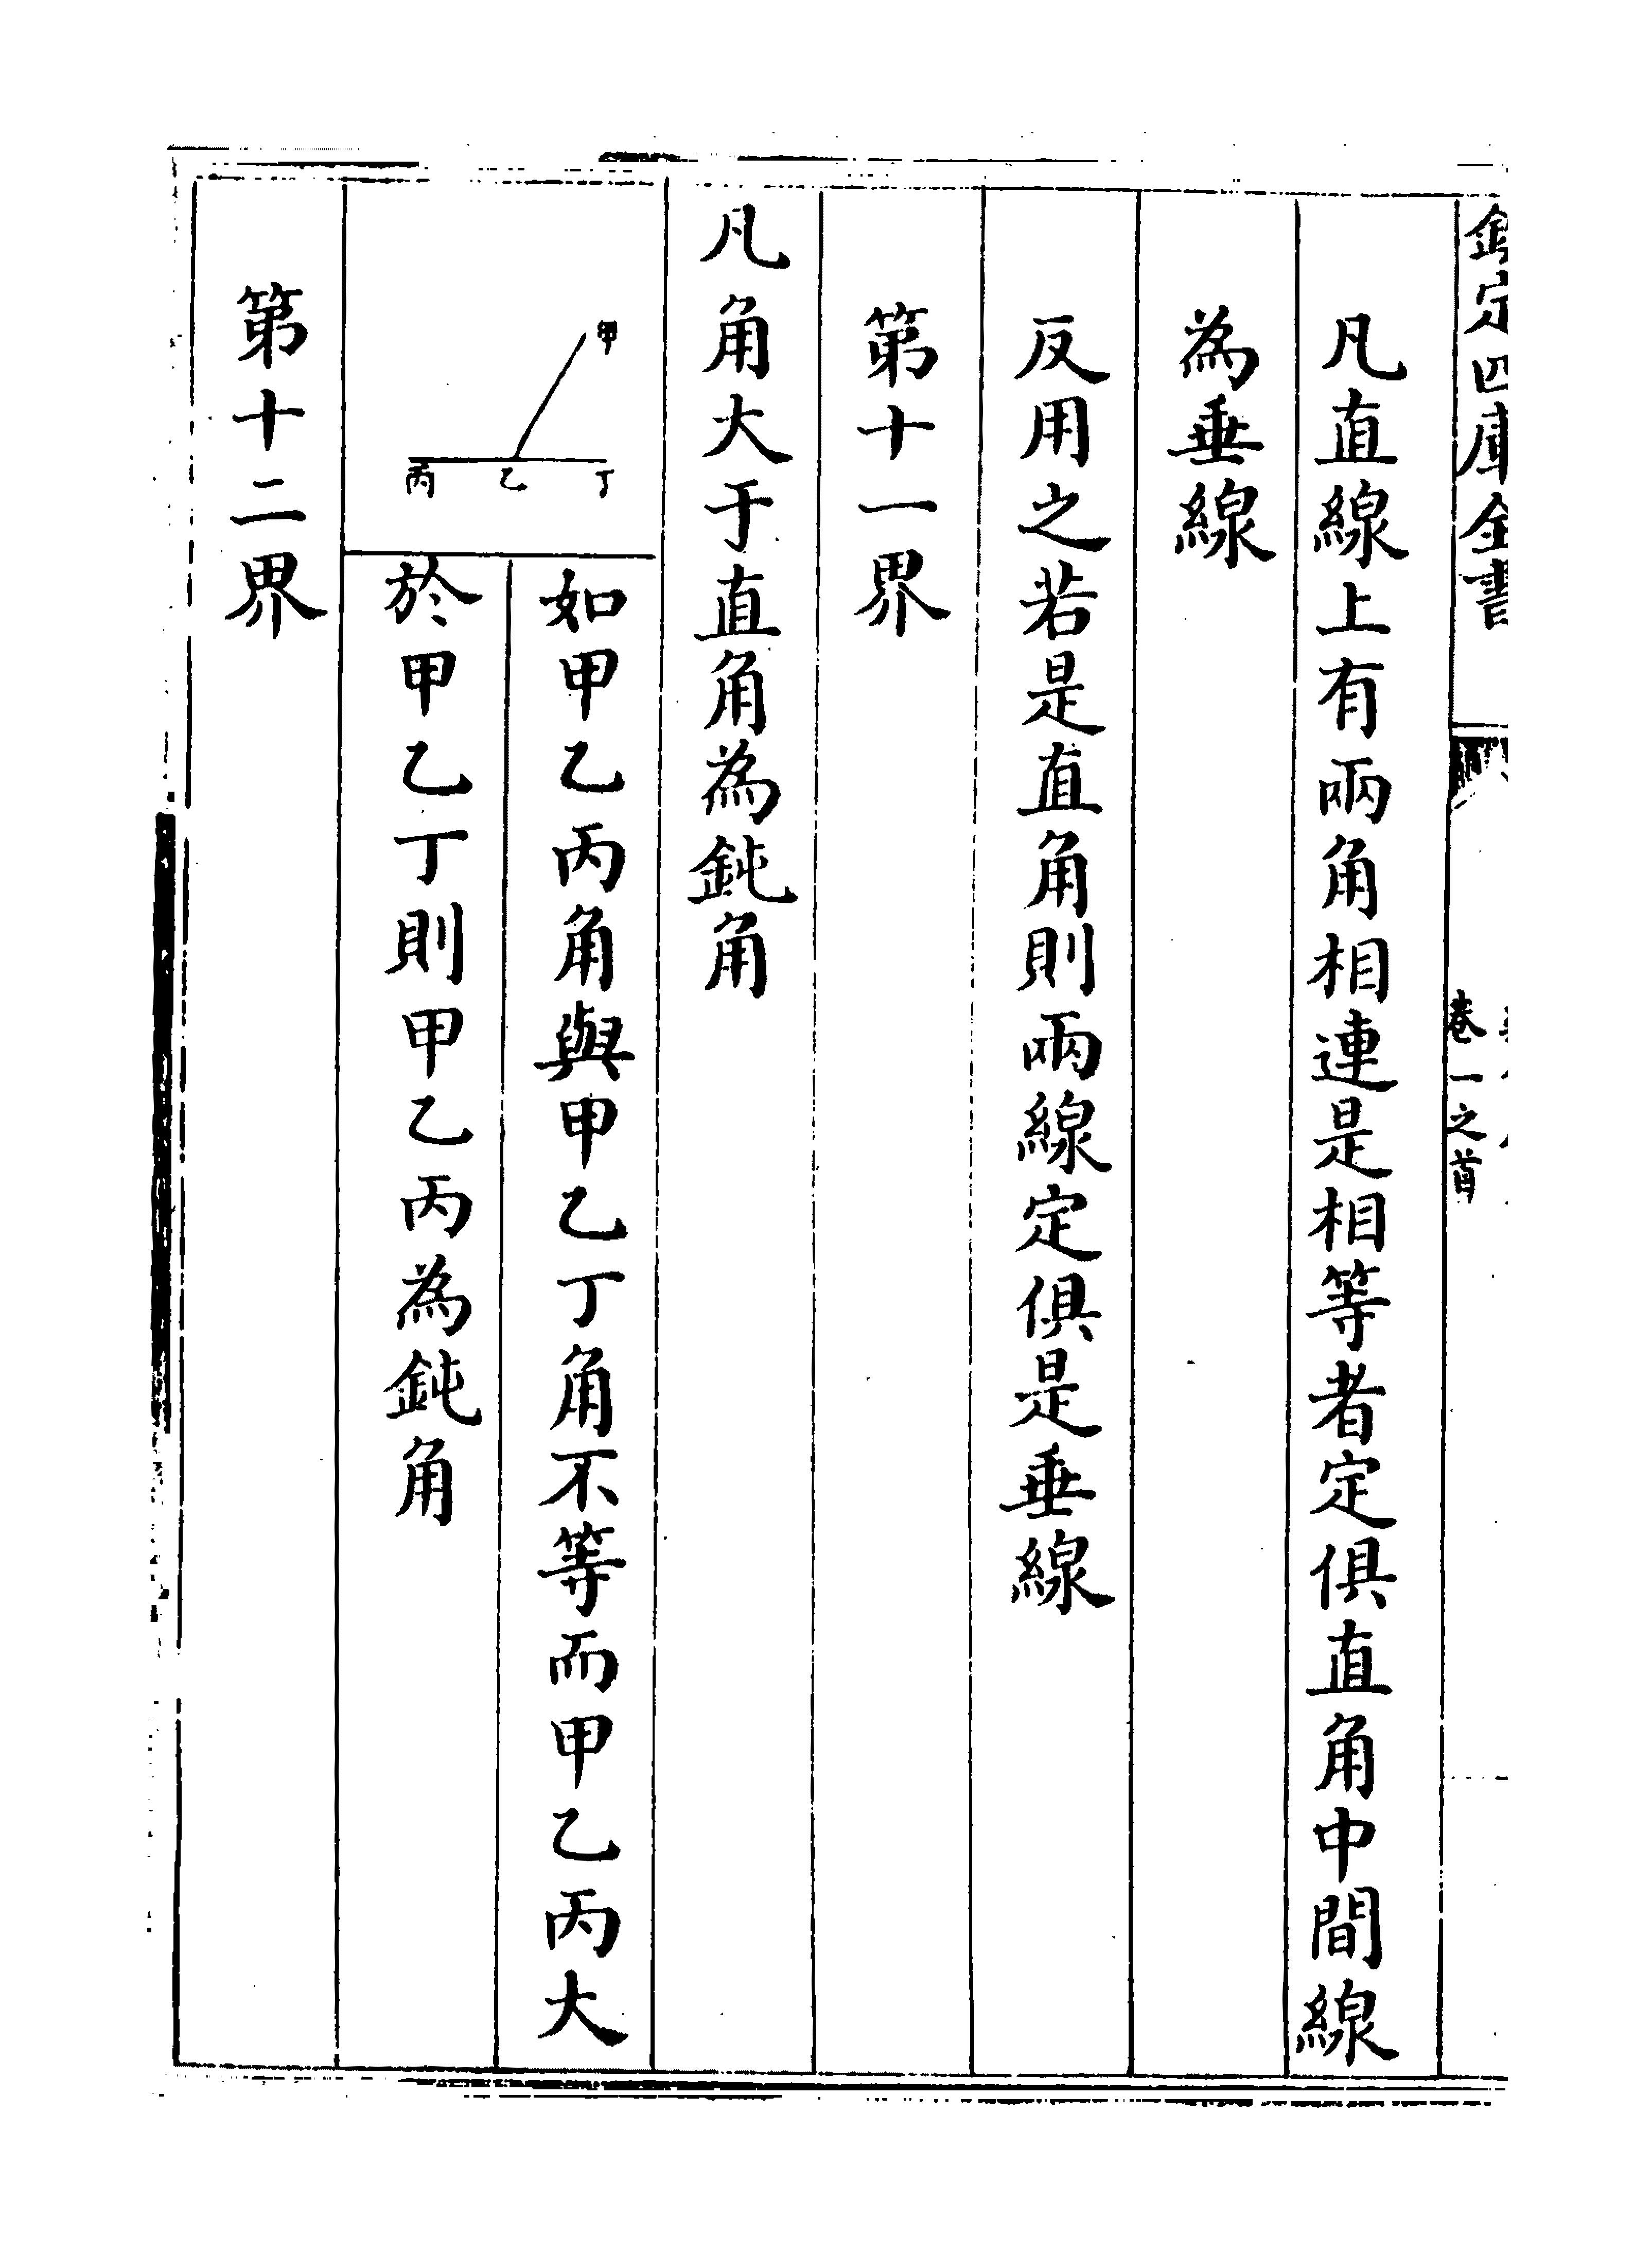 欽定四庫全書
卷一之首
凡直線上有兩角相連是相等者定俱直角中間線
為垂線
反用之若是直角則兩線定俱是垂線
第十一界
凡角大于直角為鈍角
甲
丙 乙 丁
如甲乙丙角與甲乙丁角不等而甲乙丙大
於甲乙丁則甲乙丙為鈍角
第十二界